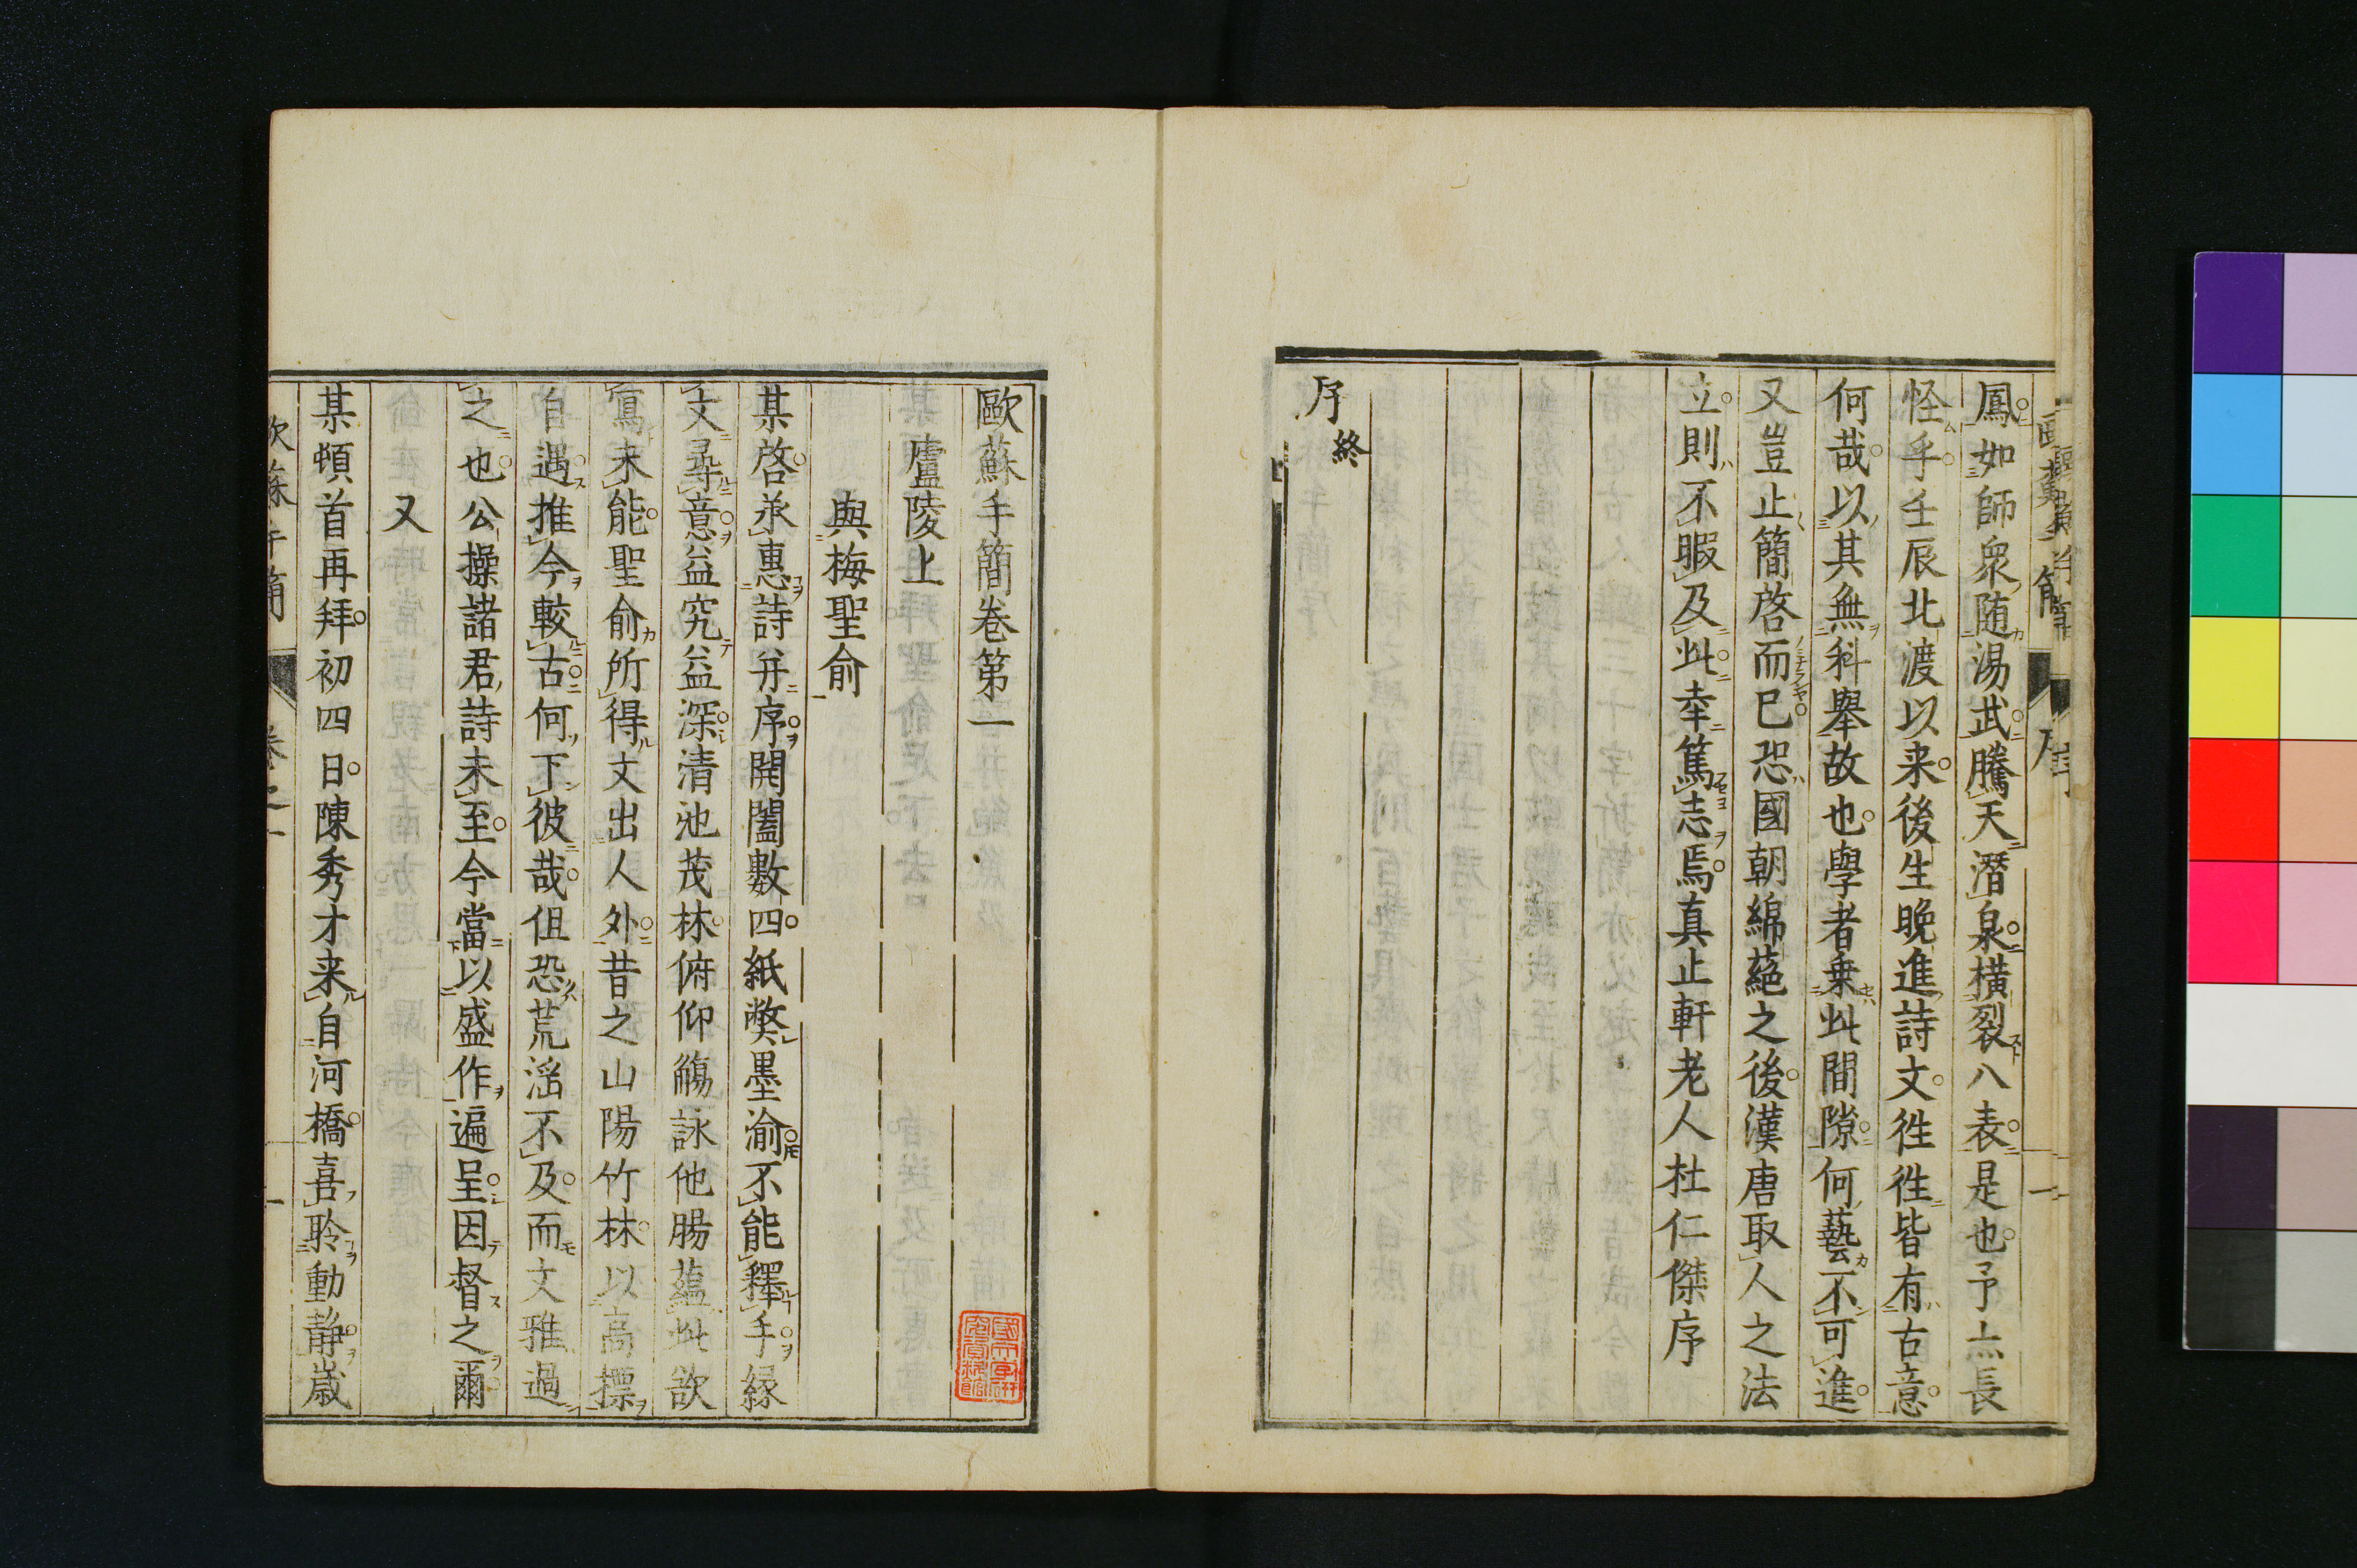 鳳如師衆随湯武騰天潛泉橫裂八表是也予亦長
怪乎壬辰北渡以来後生晚進詩文徃徃皆有古意
何哉以其無科舉故也學者乗此間隙何藝不可進
又豈止簡啓而已恐國朝綿蕝之後漢唐取人之法
立則不暇及此幸篤志焉真止軒老人杜仁傑序
序終
歐蘇手簡卷第一
廬陵上
與梅聖俞
某啓承惠詩并序開闔數四紙弊墨渝不能釋手緑
文尋意益究益深清池茂林俯仰觴詠他腸蘊此歆
寫来能聖俞所得文出人外昔之山陽竹林以高標
自遇推今較古何下彼哉伹恐荒滛不及而文雅過
之也公操諸君詩未至今當以盛作遍呈因督之爾
又
某頓首再拜初四日陳秀才来自河橋喜聆動静歳